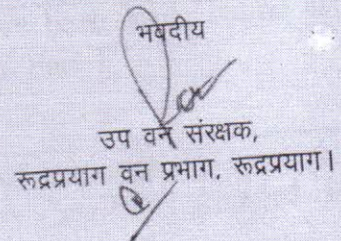 भवदीय
उप वन संरक्षक,
रूद्रप्रयाग वन प्रभाग, रूद्रप्रयाग।